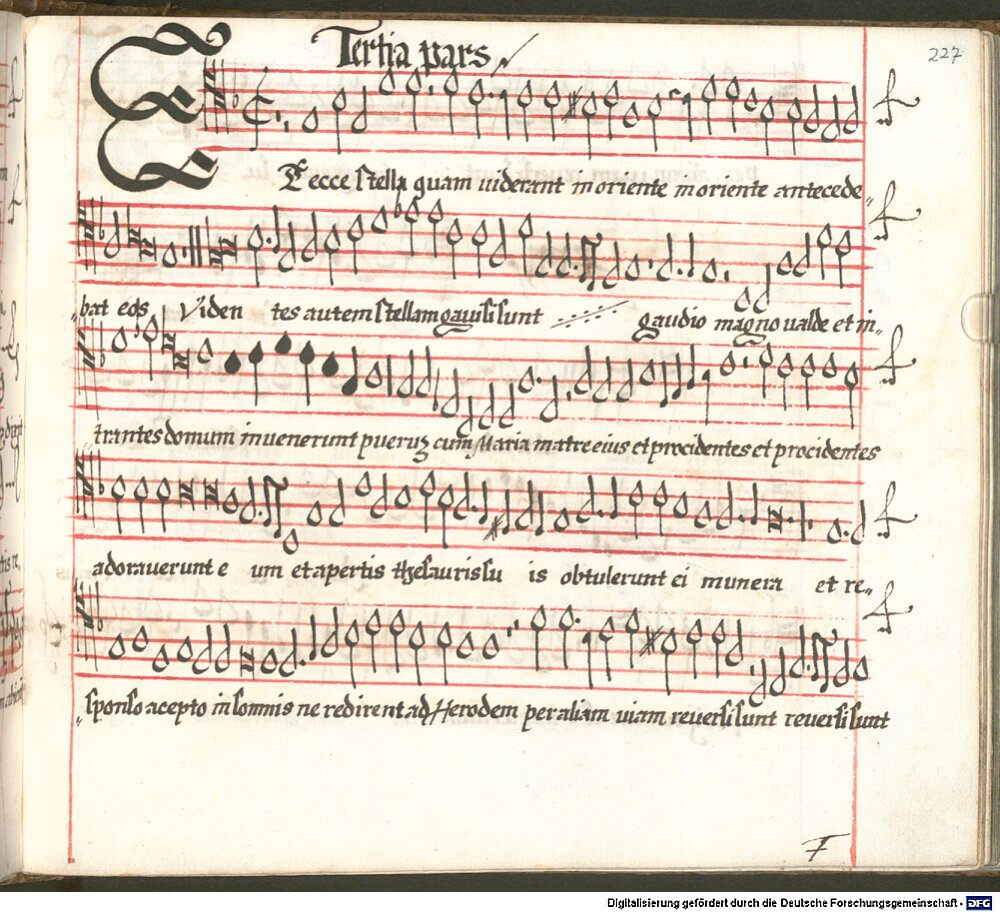 Tertia pars
227
Et ecce stella quam viderant in oriente in oriente antecede„
„bat eos Viden tes autem stellam gavisi sunt gaudio magno valde et in„
trantes domum invenerunt puerum cum Maria matre eius et procidentes et procidentes
adoraverunt e um et apertis thesauris su is obtulerunt ei munera et re„
„sponso acepto in somnis ne redirent ad Herodem per aliam viam reversi sunt reversi sunt
Digitalisierung gefördert durch die Deutsche Forschungsgemeinschaft - DFG